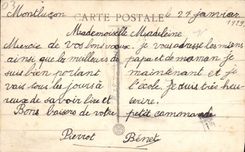 Montluçon le 27 janvier
CARTE POSTALE 1929
Mademoiselle Madeleine
Mercie de vos bons voeux. Je vous adresse les miens
ainsi que les meilleurs de papa et de maman. Je
suis bien portant maintenant et je
vais tous les jours à l'école. Je suis très heu-
reux de savoir lire et écrire.
Bons baisers de votre petit camarade
Pierrot Binet